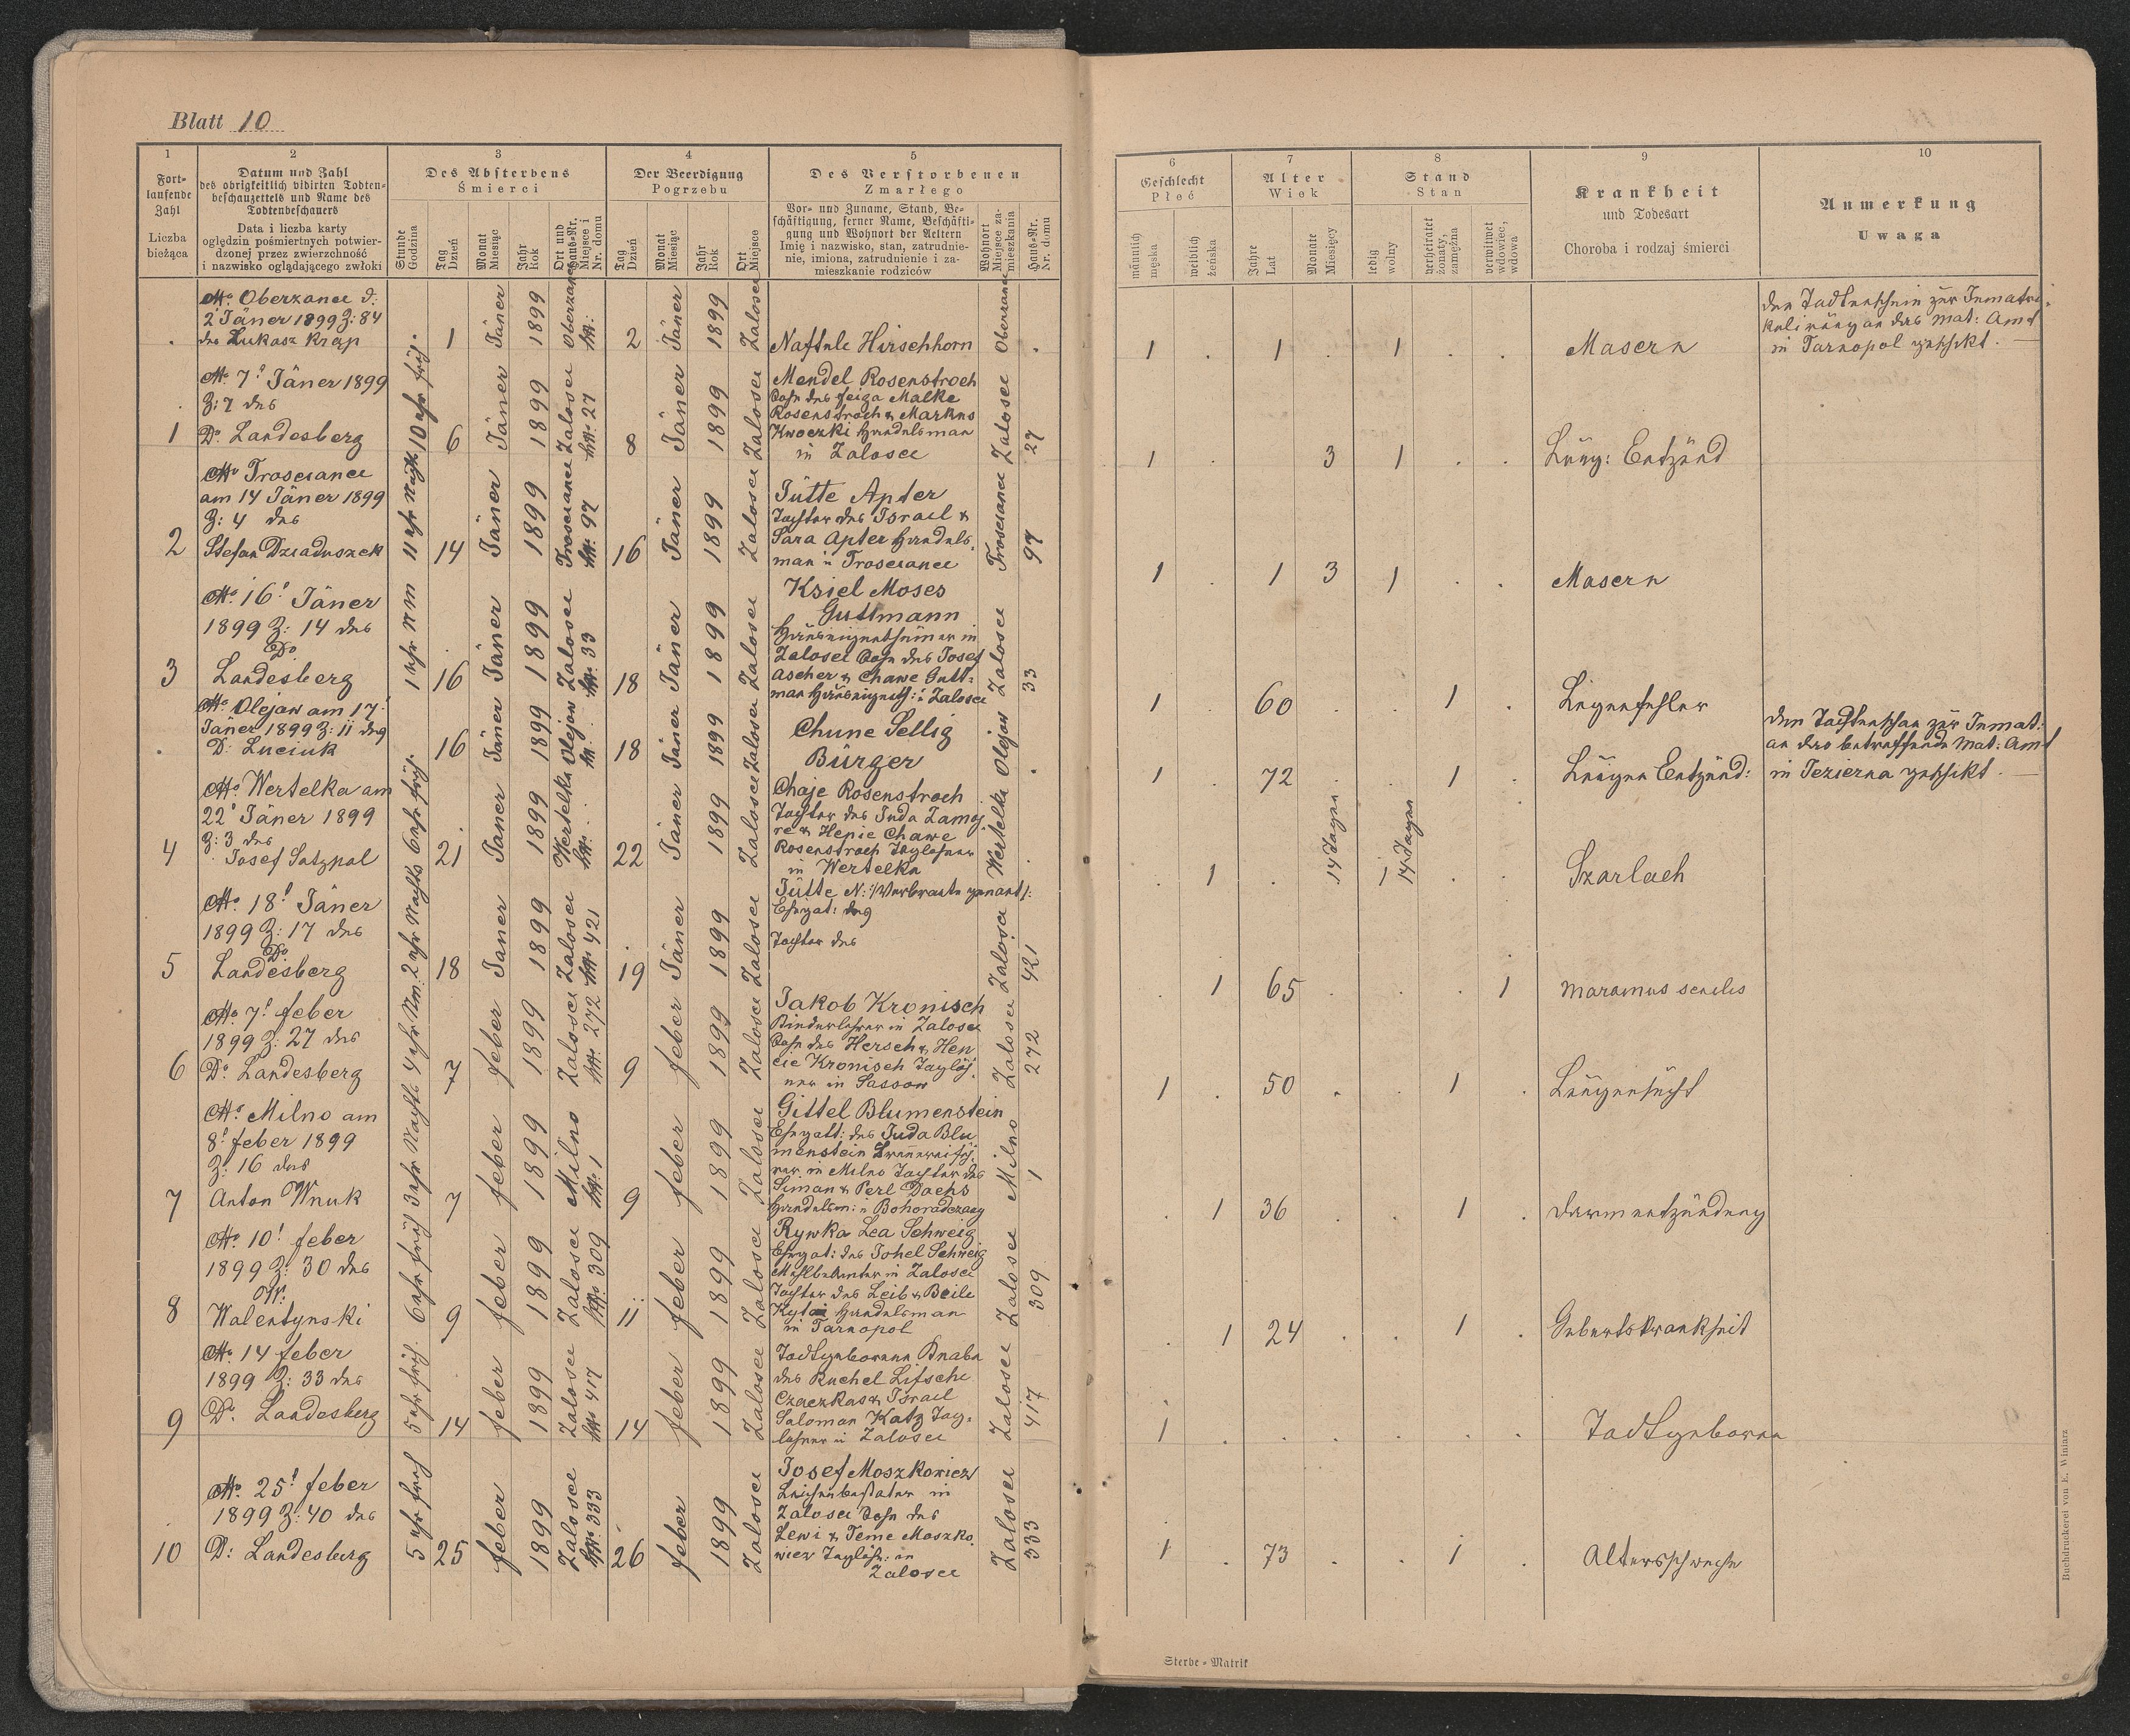 Blatt 10
1
2
3
4
5
Fort-
laufende
Zahl
Liczba
bieżąca
Datum und Zahl
des obrigkeitlich vidirten Todten-
beschauzettels und Name des
Todtenbeschauers
Data i liczba karty
oględzin pośmiertnych potwier-
dzonej przez zwierzchność
i nazwisko oglądającego zwłoki
Des Absterbens
Śmierci
Stunde
Godzina
Tag
Dzień
Monat
Miesiąc
Jahr
Rok
Ort und
Haus-Nr.
Miejsce i
Nr. domu
Der Beerdigung
Pogrzebu
Tag
Dzień
Monat
Miesiąc
Jahr
Rok
Ort
Miejsce
Des Verstorbenen
Zmarłego
Vor- und Zuname, Stand, Be-
schäftigung, ferner Name, Beschäfti-
gung und Wohnort der Aeltern
Imię i nazwisko, stan, zatrudnie-
nie, imiona, zatrudnienie i za-
mieszkanie rodziców
Wohnort
Miejsce za-
mieszkania
Haus-Nr.
Nr. domu
6
7
8
9
10
Geschlecht
Płeć
männlich
męska
weiblich
żeńska
Alter
Wiek
Jahre
Lat
Monate
Miesięcy
Stand
Stan
ledig
wolny
verheiratet
żonaty,
zamężna
verwitwet
wdowiec,
wdowa
Krankheit
und Todesart
Choroba i rodzaj śmierci
Anmerkung
Uwaga
No. Oberzance d:
2 Jäner 1899 Z: 84
des Lukasz Krap
1 Jäner 1899 Oberzance
2 Jäner 1899 Zalosce
Naftule Hirschhorn
Oberzance
1 . 1 . 1 . .
Masern
den Todtenschein zur Inmatri-
kulirung an das Mat: Amt
in Tarnopol geschikt.
1
No. 7t Jäner 1899
Z: 7 des
Dr. Landesberg
10 uhr früh
6 Jäner 1899 Zalosce
hN: 27
8 Jäner 1899 Zalosce
Mendel Rosenstroch
Sohn des Feiga Malke
Rosenstroch & Markus
Kwoczki Handelsman
in Zalosce
Zalosce 27
1 . 3 1 . .
Lung: Entzünd
2
No Trosciance
am 14 Jäner 1899
Z: 4 des
Stefan Dziaduszek
11 uhr Nacht
14 Jäner 1899 Trosciance
hN: 97
16 Jäner 1899 Zalosce
Jütte Apter
Tochter des Israel &
Sara Apter Handels
man in Trosciance
Trosciance 97
1 . 1 3 1 . .
Masern
3
No. 16t Jäner
1899 Z: 14 des
Dr
Landesberg
1 uhr NM
16 Jäner 1899 Zalosce
hN: 33
18 Jäner 1899 Zalosce
Ksiel Moses
Guttmann
Hauseigenthümer in
Zalosce Sohn des Josef
Ascher & Chawe Gutt-
man Hauseigenth: in Zalosce
Zalosce 33
1 60 . . 1 .
No. Olejow am 17t
Jäner 1899 Z: 11 des
D: Luciuk
16 Jäner 1899 Olejow
18 Jäner 1899 Zalosce
Chune Sellig
Bürger
Olejow
1 . 72 . . 1 .
Lungen Entzünd:
den Todtenschan zur Inmat:
an das betreffende Mat: Amt
in Jezierna geschikt.
4
No. Wertelka am
22t Jäner 1899
Z: 3 des
Josef Satzpal
6 uhr früh
21 Jäner 1899 Wertelka
22 Jäner 1899 Zalosce
Chaje Rosenstroch
Tochter des Juda Zamoj
re & Henie Chawe
Rosenstroch Taglohner
in Wertelka
Wertelka
. 1 . 14 Tagen 1 14 Tagen . .
Szarlach
5
No. 18t Jäner
1899 Z: 17 des
Dr
Landesberg
2 uhr Nachts
18 Jäner 1899 Zalosce
hN: 421
19 Jäner 1899 Zalosce
Ehegat: des
Tochter des
Zalosce 421
. 1 65 . . . 1
Maramus senilis
6
No. 7t feber
1899 Z: 27 des
Dr. Landesberg
4 uhr Nm.
7 feber 1899 Zalosce
hN: 272
9 feber 1899 Zalosce
Jakob Kronisch
Kinderlehrer in Zalosce
Sohn des Hersch & Hen
cie Kronisch Taglöh
ner in Sassow
Zalosce 272
1 . 50 . . 1 .
Lungensucht
7
No. Milno am
8t feber 1899
Z: 16 des
Anton Wnuk
3 uhr Nachts
7 feber 1899 Milno
hN: 1
9 feber 1899 Zalosce
Gittel Blumenstein
Ehegatt: des Juda Blu
menstein
in Milno Tochter des
Siman & Perl Dachs
Handelsm: in Bohorodczany
Milno 1
. 1 36 . . 1 .
Darmentzündung
8
No. 10t feber
1899 Z: 30 des
W.
Walentynski
6 uhr früh
9 feber 1899 Zalosce
hN: 309
11 feber 1899 Zalosce
Rywka Lea Schweig
Ehegat: des Johel Schweig
Mehlbeamter in Zalosce
Tochter des Leib & Beile
Kytai Handelsman
in Tarnopol
Zalosce 309
. 1 24 . . 1 .
Geburtskrankheit
9
No. 14 feber
1899 Z: 33 des
Dr. Landesberg
5 uhr früh.
14 feber 1899 Zalosce
hN: 417
14 feber 1899 Zalosce
Todtgeborener Knabe
des Ruchel Lifsche
Czaczkas & Israel
Saloman Katz Tag-
lohner in Zalosce
Zalosce 417
1 . . . . . .
Todtgeboren
10
No. 25t feber
1899 Z: 40 des
D: Landesberg
5 uhr früh
25 feber 1899 Zalosce
hN: 333
26 feber 1899 Zalosce
Josef Moszkowicz
Leichenbestater in
Zalosce Sohn des
Lewi & Teme Moszko
wicz Taglöh: in
Zalosce
Zalosce 333
1 . 73 . . 1 .
Altersschweche
Sterbe-Matrik
Buchdruckerei von E. Winiarz